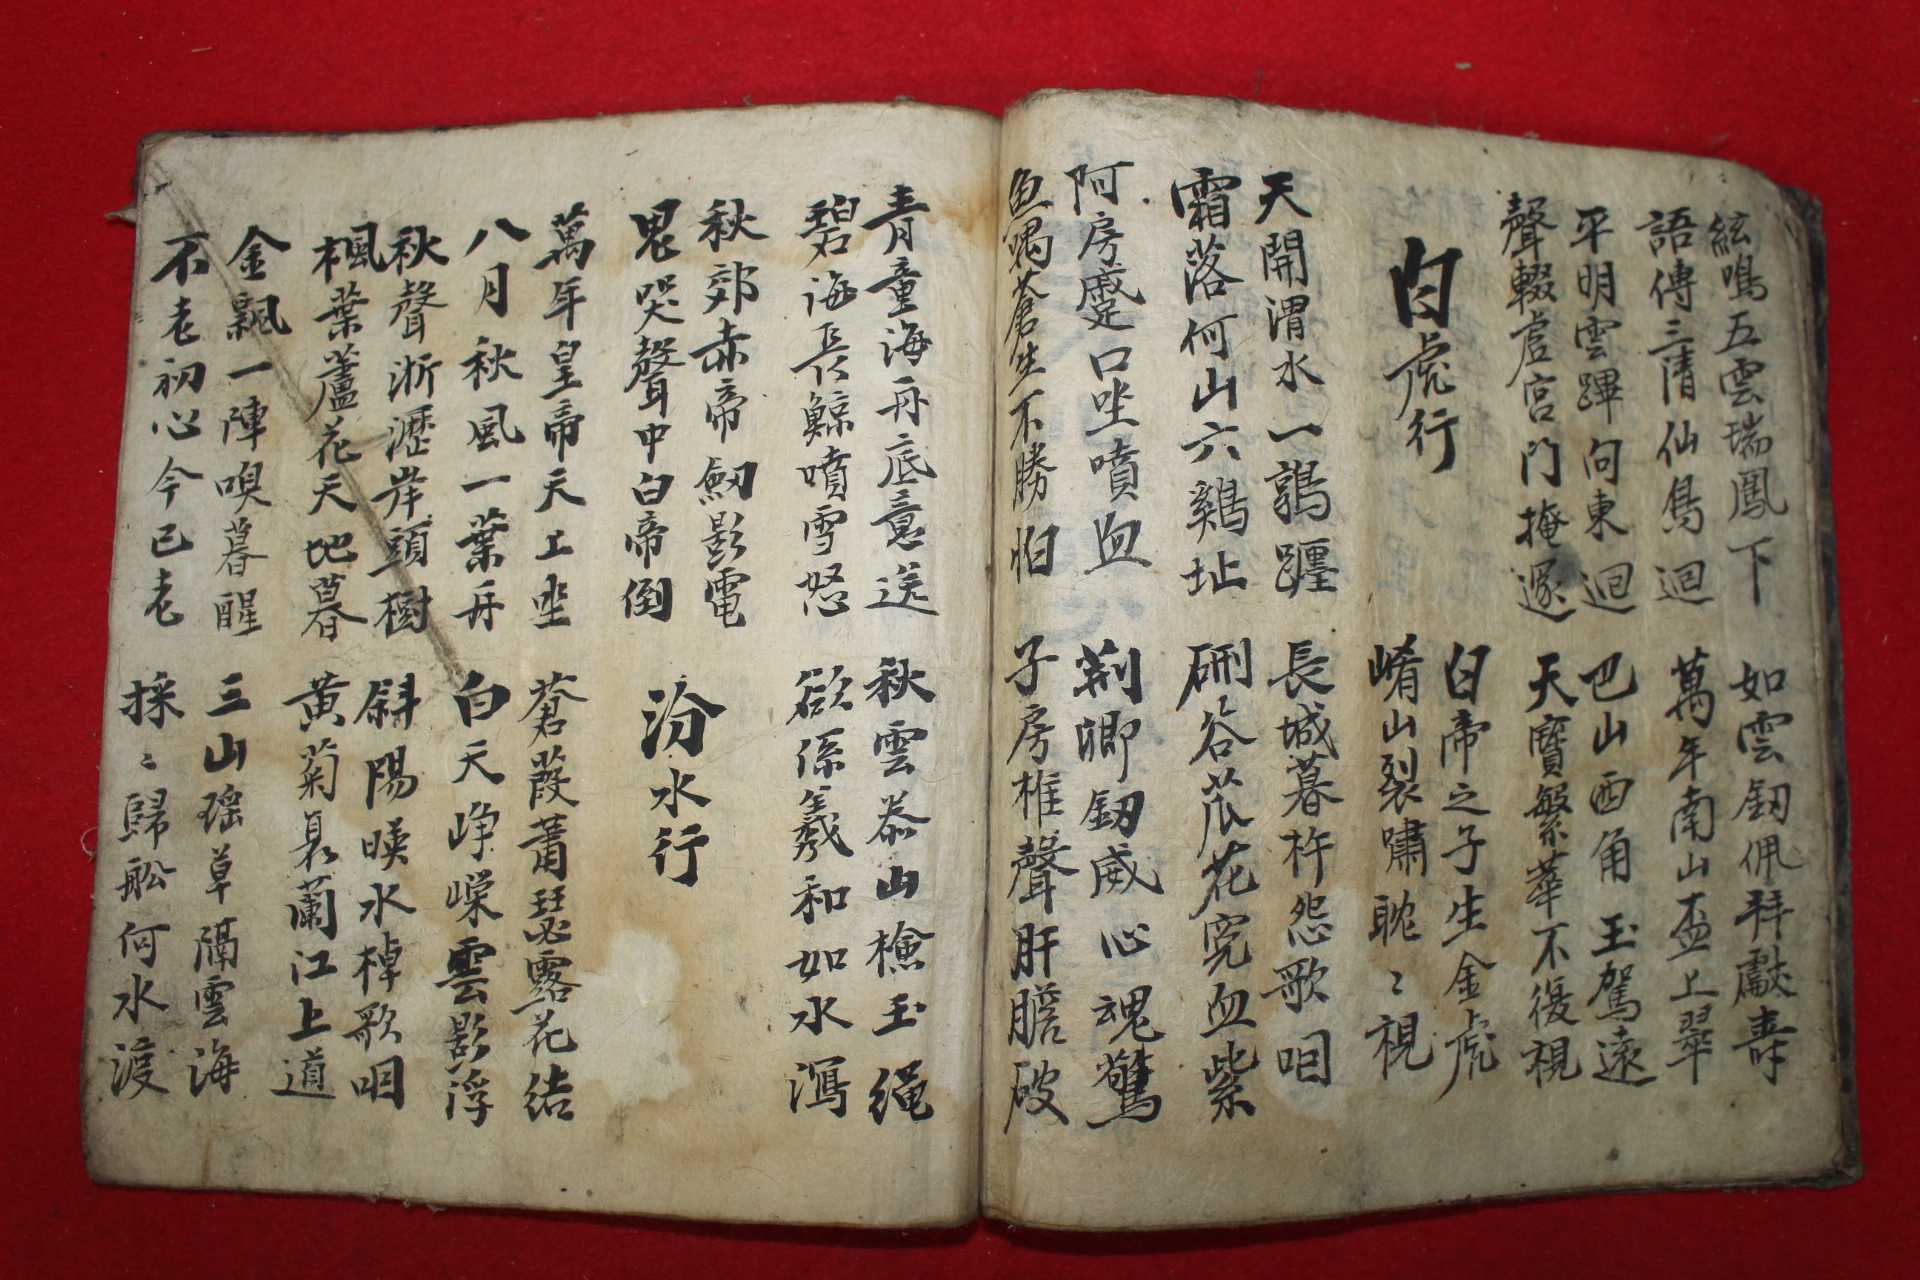 絃鳴五雲瑞鳳下 如雲釼佩拜獻壽
語傳三清仙鳥迴 萬年南山盃上翠
平明雲蹕向東迴 巴山西角玉駕遠
聲輟虗宮門掩邃 天寶繁華不復視
白虎行 白帝之子生金虎
崤山裂嘯耽〻視
天開渭水一鶉躔 長城暮杵怨歌咽
霜落何山六鷄址 硎谷苽花寃血紫
阿房蹙口坐噴血 荊卿釼威心魂驚
魚喁蒼生不勝怕 子房椎聲肝膽破
青童海舟底意送 秋雲泰山檢玉繩
碧海長鯨噴雪怒 欲係羲和如水瀉
秋郊赤帝釼影電
鬼哭聲中白帝倒 汾水行
萬年皇帝天上坐 蒼葭蕭瑟露花結
八月秋風一葉舟 白天崢嶸雲影浮
秋聲淅瀝岸頭樹 斜陽暎水棹歌咽
楓葉蘆花天地暮 黃菊衰蘭江上道
金飄一陣嗅暮醒 三山瑤草隔雲海
不老初心今已老 採〻歸舩何水渡